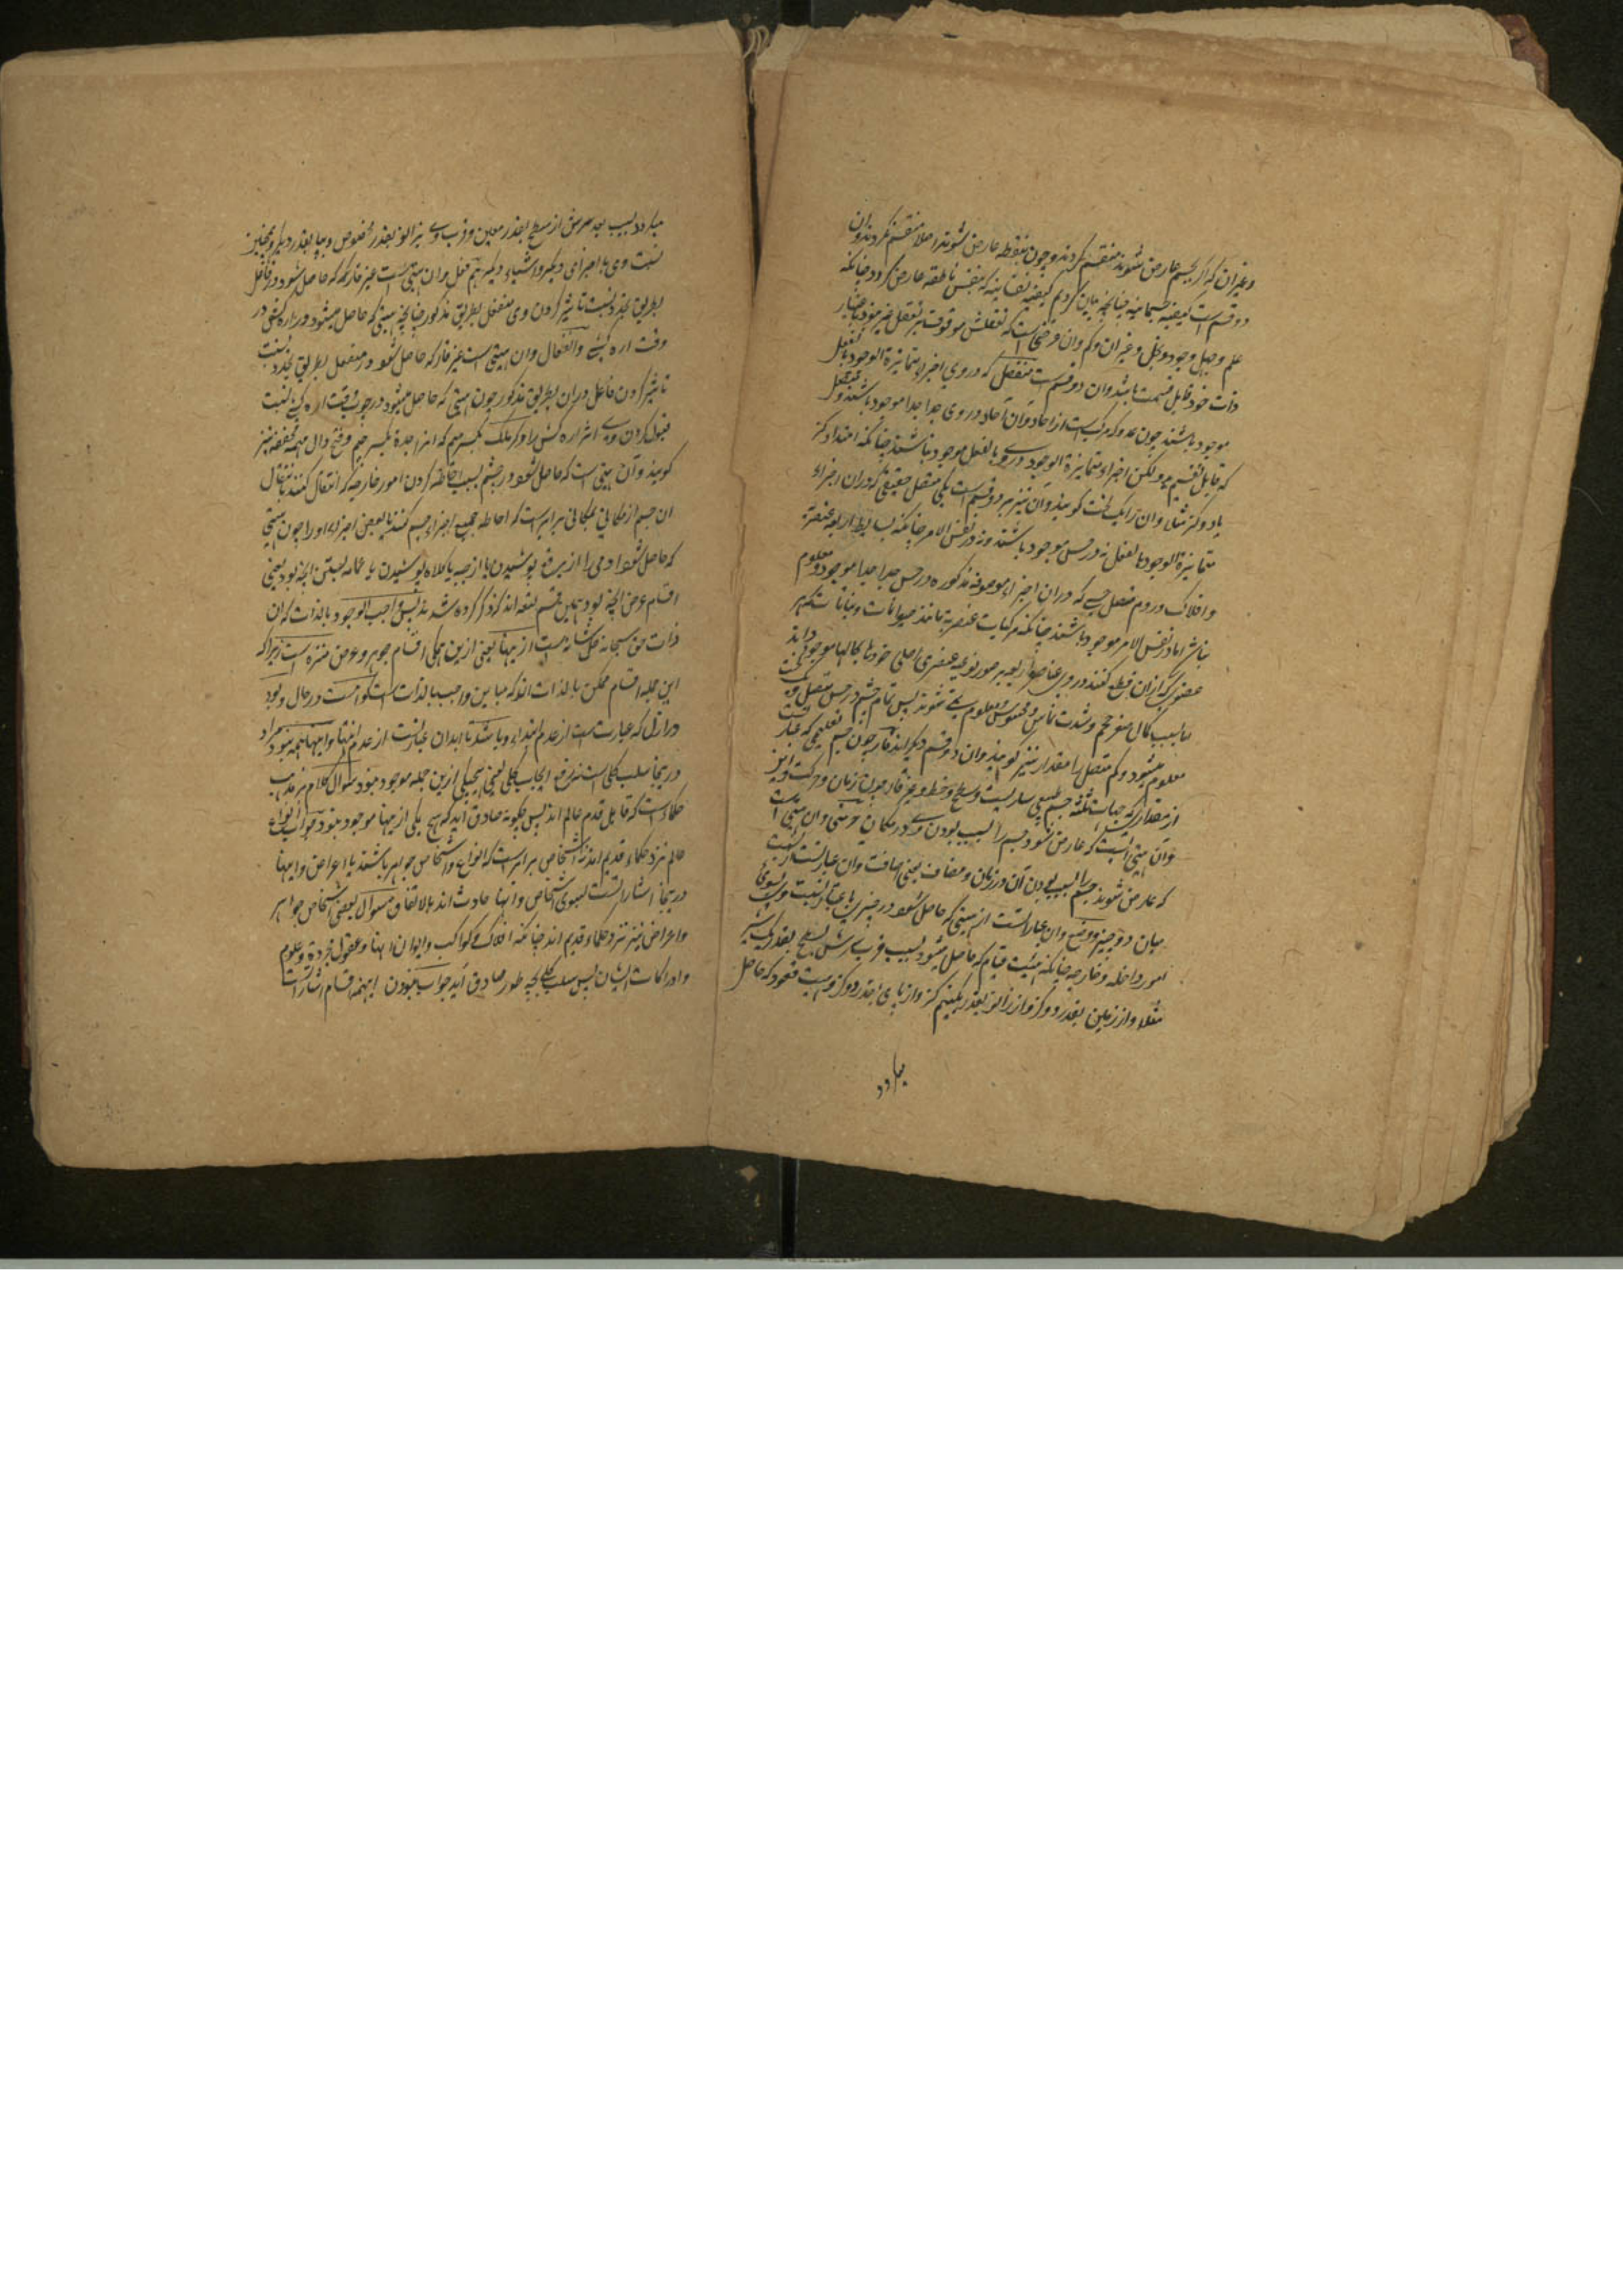 وغیران که اگر بجسم عارض شوند منقسم گردند وچون بنقطه عارض شوند اصلا منقسم نکردند وان
دو قسم است کیفیه جسمانیه چنانچه بیان کردیم کیفیه نفسانیه که بنفس ناطقه عارض گردد چنانکه
علم وجهل وجود وبخل وغیران وکم وان عرضی است که تعقلش موقوف بر تعقل غیر نبود باعتبار
ذات خود قابل قسمت باشد وان دو قسم است منفصل که در وی اجزاء متمایزة الوجود بالفعل
موجود باشند چون عدد که مرکب است از احاد وان احاد در وی جدا جدا موجود باشند ومتصل
که قابل تقسیم بود لکن اجزاء متمایزة الوجود در وی بالفعل موجود نباشند چنانکه امتداد گز
یا دو گز مثلا وان را یک لخت گویند وان نیز بر دو قسم است یکی متصل حقیقی که دران اجزاء
متمایزة الوجود بالفعل نه در حس موجود باشند ونه در نفس الامر چنانکه بسایط اربعه عنصریه
وافلاک ودوم متصل حسی که دران اجزاء موصوفه مذکوره در حس جدا جدا موجود ومعلوم
نباشد اما در نفس الامر موجود باشند چنانکه مرکبات عنصریه مانند حیوانات ونباتات که هر
عضوی که ازان قطع کنند در وی عناصر اربعه بر صور نوعیه عنصری اصلی خودها بحالها موجود اند
اما بسبب کمال صغر حجم وشدت تماس محسوس ومعلوم یکی نشوند پس تمام جسم در حس متصل ویک لخت
معلوم میشود وکم متصل را مقدار نیز گویند وان دو قسم دیگر اند قار چون جسم تعلیمی که عبارت
از مقداری که جهات ثلثه جسم طبیعی ساریست وسطح وخط وغیر قار چون زمان وحرکت واین
وان هیئتی است که عارض شود جسم را بسبب بودن وی در مکان ومتی وان هیئتی است
که عارض شوند جسم را بسبب بودن آن در زمان ومضاف یعنی اضافت وان عبارتست از نسبت
میان دو چیز ووضع وان عبارتست از هیئتی که حاصل شود در چیزی باعتبار نسبت وی بسوی
امور داخله وخارجه چنانکه هیئت قیام که حاصل میشود بسبب قرب سرش بسطح بقدر یک شبر
مثلا واز زمین بقدر دو گز واز زانو بقدر یکنیم گز واز پای بقدر دو گز وهیئت قعود که حاصل
میگردد
میگردد بسبب بعد سرش از سطح بقدر معین وقرب وی بزانو بقدر مخصوص وبپا بقدر دیگر وهمچنین
نسبت وی باجزای دیگر واشیاء دیگر هم فعل وان هیئتی است غیر قار که حاصل شود در فاعل
بطریق تجدد بنسبت تاثیر کردن وی در منفعل بطریق مذکور چنانچه هیئتی که حاصل میشود در اره کش در
وقت اره کشی وانفعال وان هیئتی است غیر قار که حاصل شود در منفعل بطریق تجدد بنسبت
تاثیر کردن فاعل دران بطریق مذکور چون هیئتی که حاصل میشود در چوب وقت اره کشی بنسبت
قبول کردن وی اثر اره کش را وملک بکسر میم که انرا جدة بکسر جیم وفتح دال مهمله مخففه نیز
گویند وان هیئتی است که حاصل شود در جسم بسبب احاطه کردن امور خارجیه که انتقال کنند بانتقال
ان جسم از مکانی بمکانی برابر است که احاطه جمیع اجزاء جسم کنند یا بعض اجزاء او را چون هیئتی
که حاصل شود ادمی را از پیرهن پوشیدن یا از جبه یا کلاه پوشیدن یا عمامه بستن انچه بود یعنی
اقسام عرض انچه بود همین قسم نه اند که ذکر کرده شد بدانکه واجب الوجود بالذات که ان
ذات حق سبحانه جل شانه است از اینها یعنی ازین همگی اقسام جوهر وعرض منزه است زیرا که
این جمله اقسام ممکن بالذات اند که مباین واجب بالذات است گو هست در حال وبود
در ازل که عبارت است از عدم ابتداء وباشد تا ابد ان عبارتست از عدم انتها واینها همه نبود مراد
در اینجا سلب کلی است نه رفع ایجاب کلی یعنی هیچ یکی ازین جمله موجود نبود سوال کلام بر مذهب
حکماء است که قایل قدم عالم اند پس چگونه صادق آید که هیچ یکی از اینها موجود نبود جواب انواع
عالم نزد حکماء قدیم اند نه اشخاص برابر است که انواع واشخاص جواهر باشند یا اعراض واینها
در اینجا اشارتست بسوی اشخاص وانها حادث اند بالاتفاق سوال بعض اشخاص جواهر
واعراض نیز نزد حکماء قدیم اند چنانکه افلاک وکواکب والوان انها وعقول مجرده وعلوم
وادراکات ایشان پس سلب کلی بچه طور صادق آید جواب بودن اینهمه اقسام اشارتست